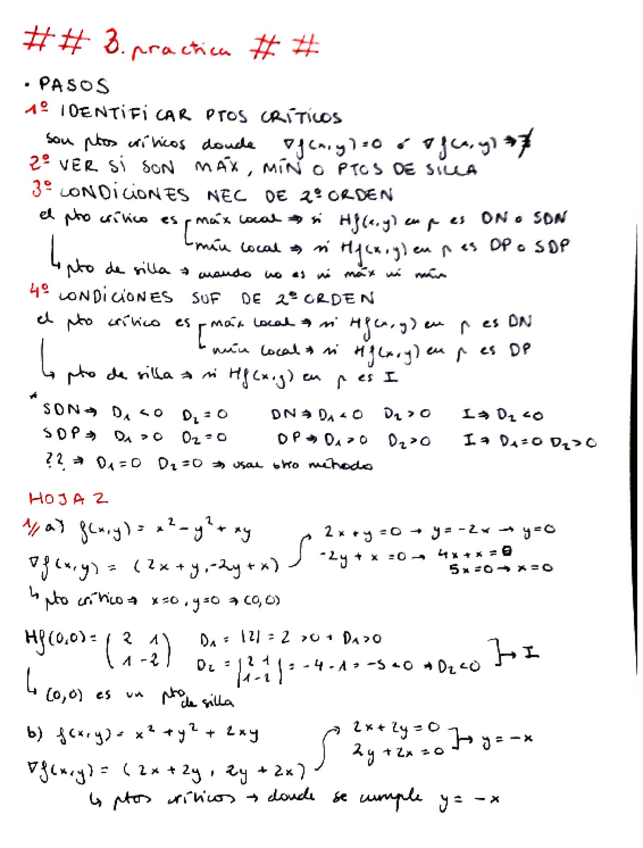 ## 3. practica ##
· PASOS
1º IDENTIFICAR PTOS CRÍTICOS
son ptos críticos donde ∇f(x,y)=0 ó ∇f(x,y) → ∄
2º VER SI SON MÁX, MÍN O PTOS DE SILLA
3º CONDICIONES NEC DE 2º ORDEN
el pto crítico es máx local → si Hf(x,y) en p es DN o SDN
mín local → si Hf(x,y) en p es DP o SDP
↳ pto de silla → cuando no es ni máx ni mín
4º CONDICIONES SUF DE 2º ORDEN
el pto crítico es máx local → si Hf(x,y) en p es DN
mín local → si Hf(x,y) en p es DP
↳ pto de silla → si Hf(x,y) en p es I
*
SDN → D₁ < 0 D₂ = 0 DN → D₁ < 0 D₂ > 0 I → D₂ < 0
SDP → D₁ > 0 D₂ = 0 DP → D₁ > 0 D₂ > 0 I → D₁ = 0 D₂ > 0
?? → D₁ = 0 D₂ = 0 → usar otro método
HOJA 2
1// a) f(x,y) = x² - y² + xy
2x + y = 0 → y = -2x → y = 0
∇f(x,y) = (2x + y, -2y + x)
-2y + x = 0 → 4x + x = 0
5x = 0 → x = 0
↳ pto crítico → x=0, y=0 → (0,0)
Hf(0,0) = (2 1
1 -2)
D₁ = |2| = 2 > 0 → D₁ > 0
D₂ = |2 1
1 -2| = -4 - 1 = -5 < 0 → D₂ < 0 → I
↳ (0,0) es un pto de silla
b) f(x,y) = x² + y² + 2xy
2x + 2y = 0
2y + 2x = 0 → y = -x
∇f(x,y) = (2x + 2y, 2y + 2x)
↳ ptos críticos → donde se cumple y = -x